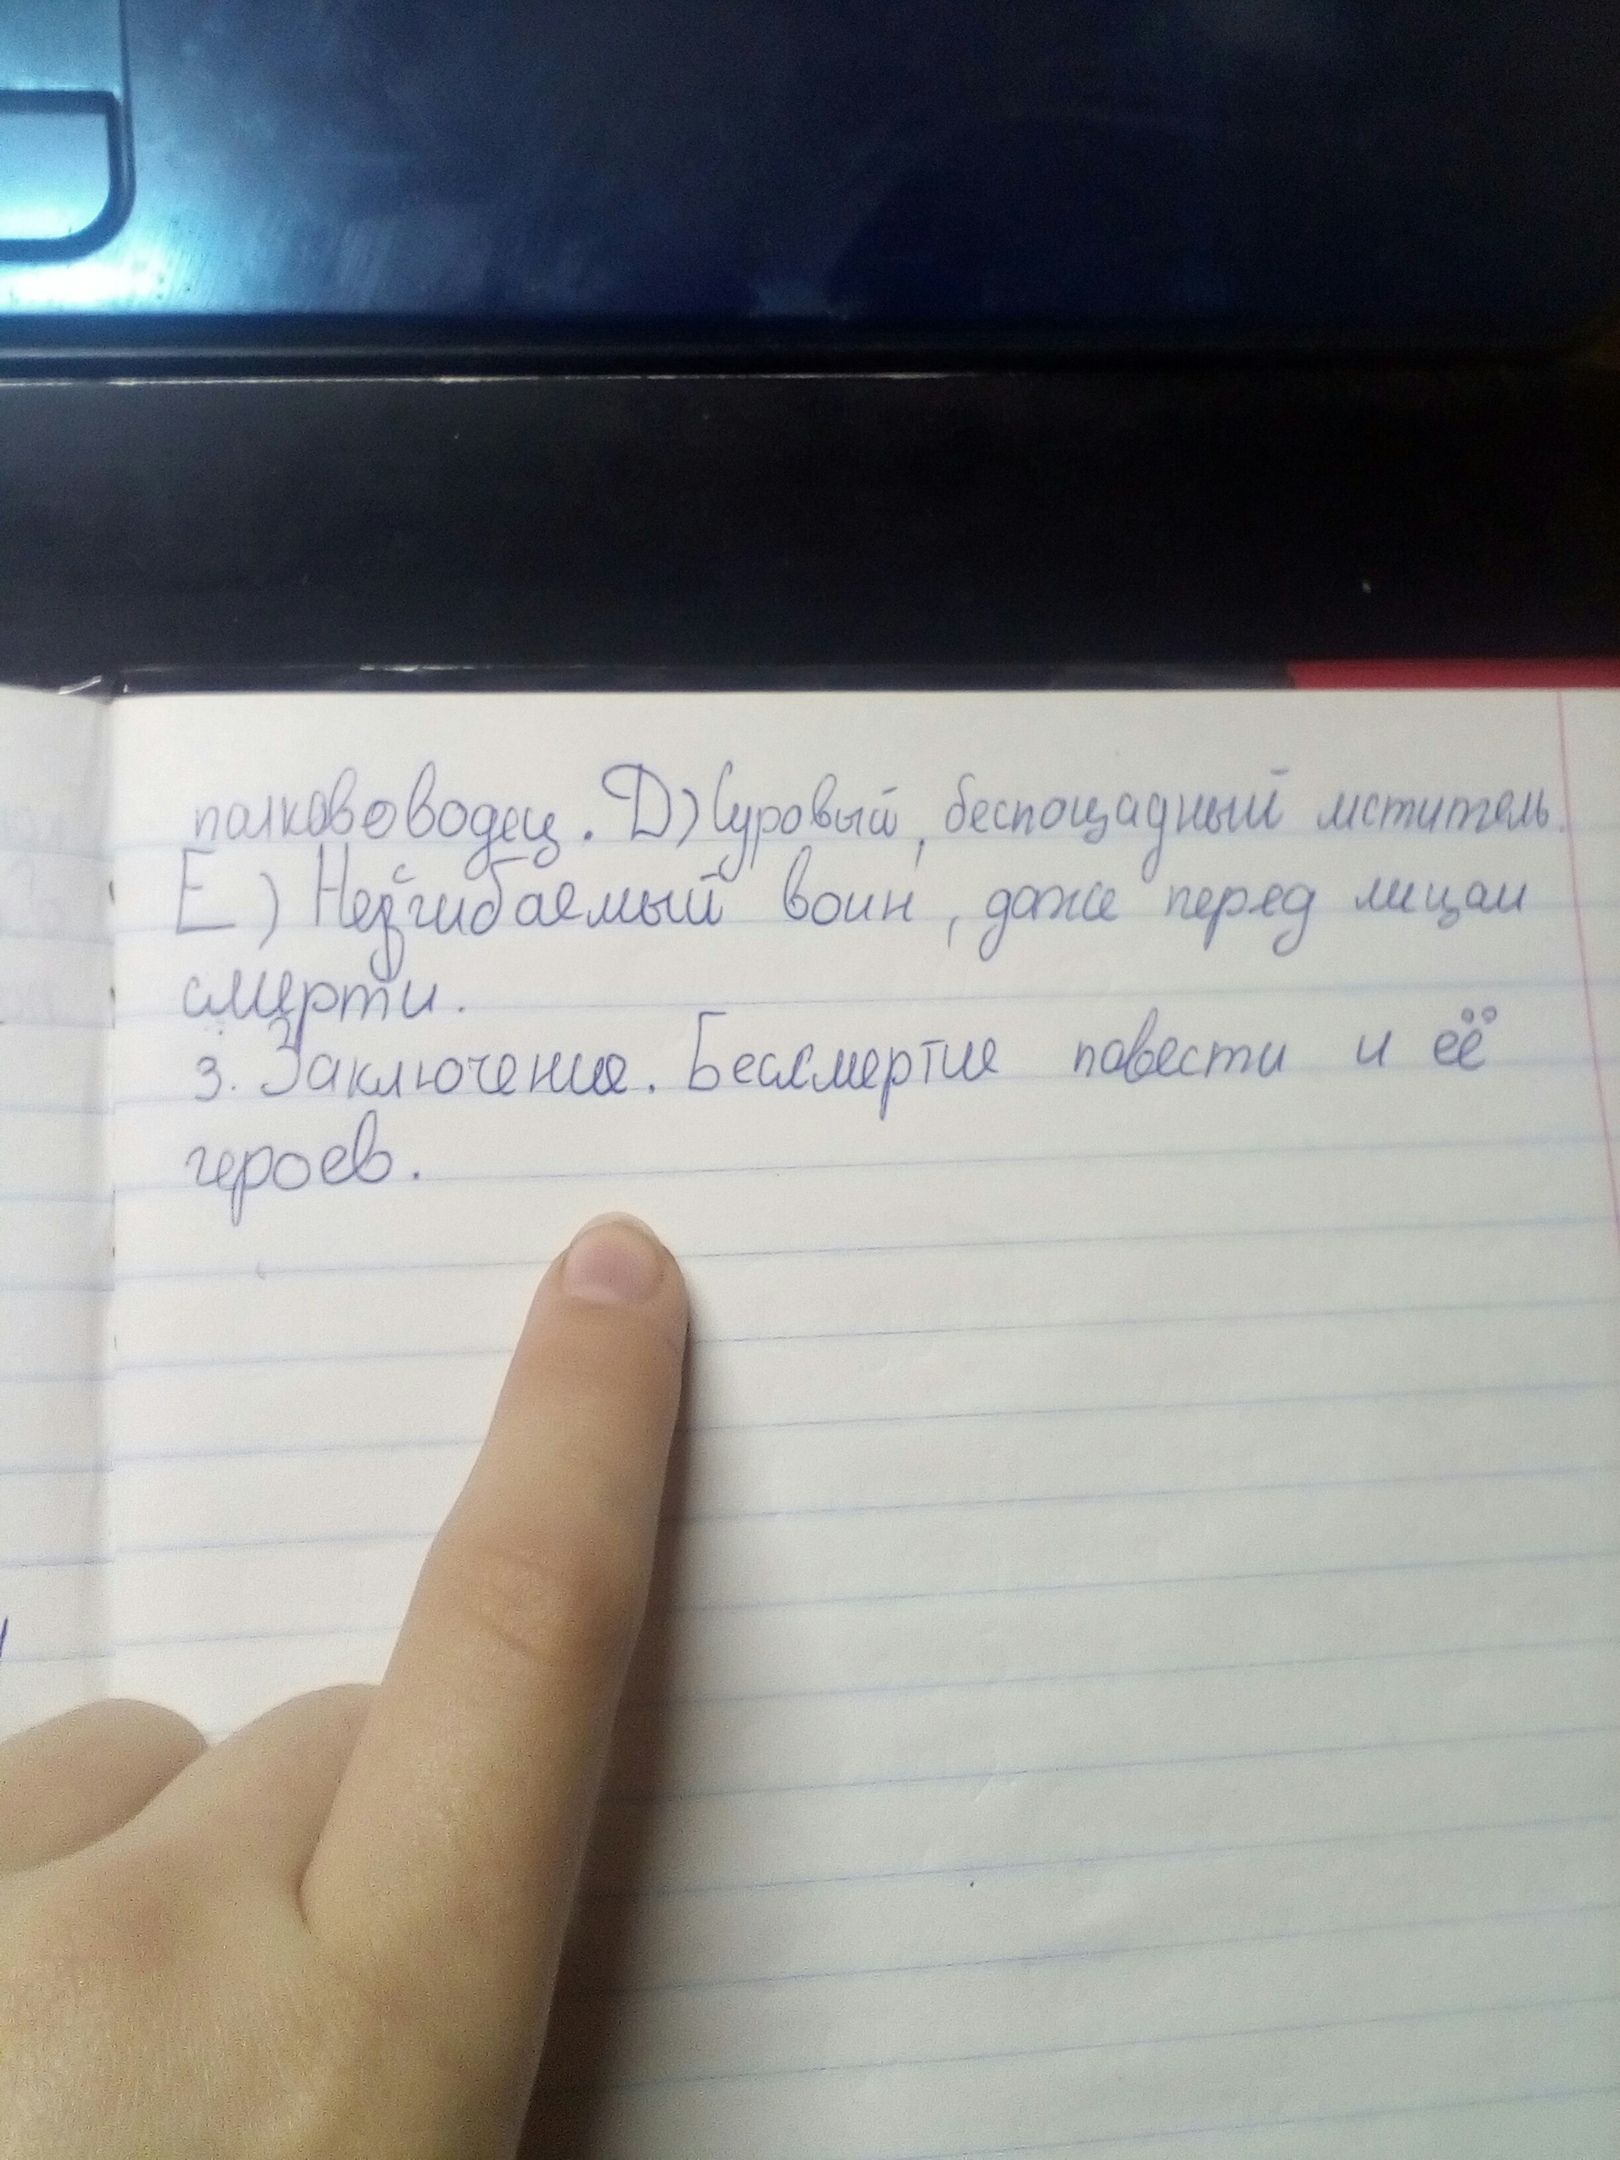 полкововодец. D) Суровый, беспощадный мститель.
E) Незгибаемый воин, даже перед лицом
смерти.
3. Заключение. Бессмертие повести и её
героев.